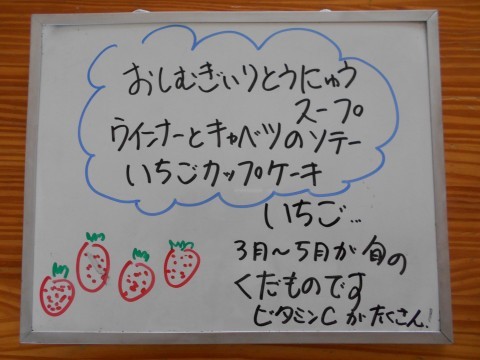 おしむぎいりとうにゅう
スープ
ウインナーとキャベツのソテー
いちごカップケーキ
いちご…
3月～5月が旬の
くだものです
ビタミンCがたくさん!